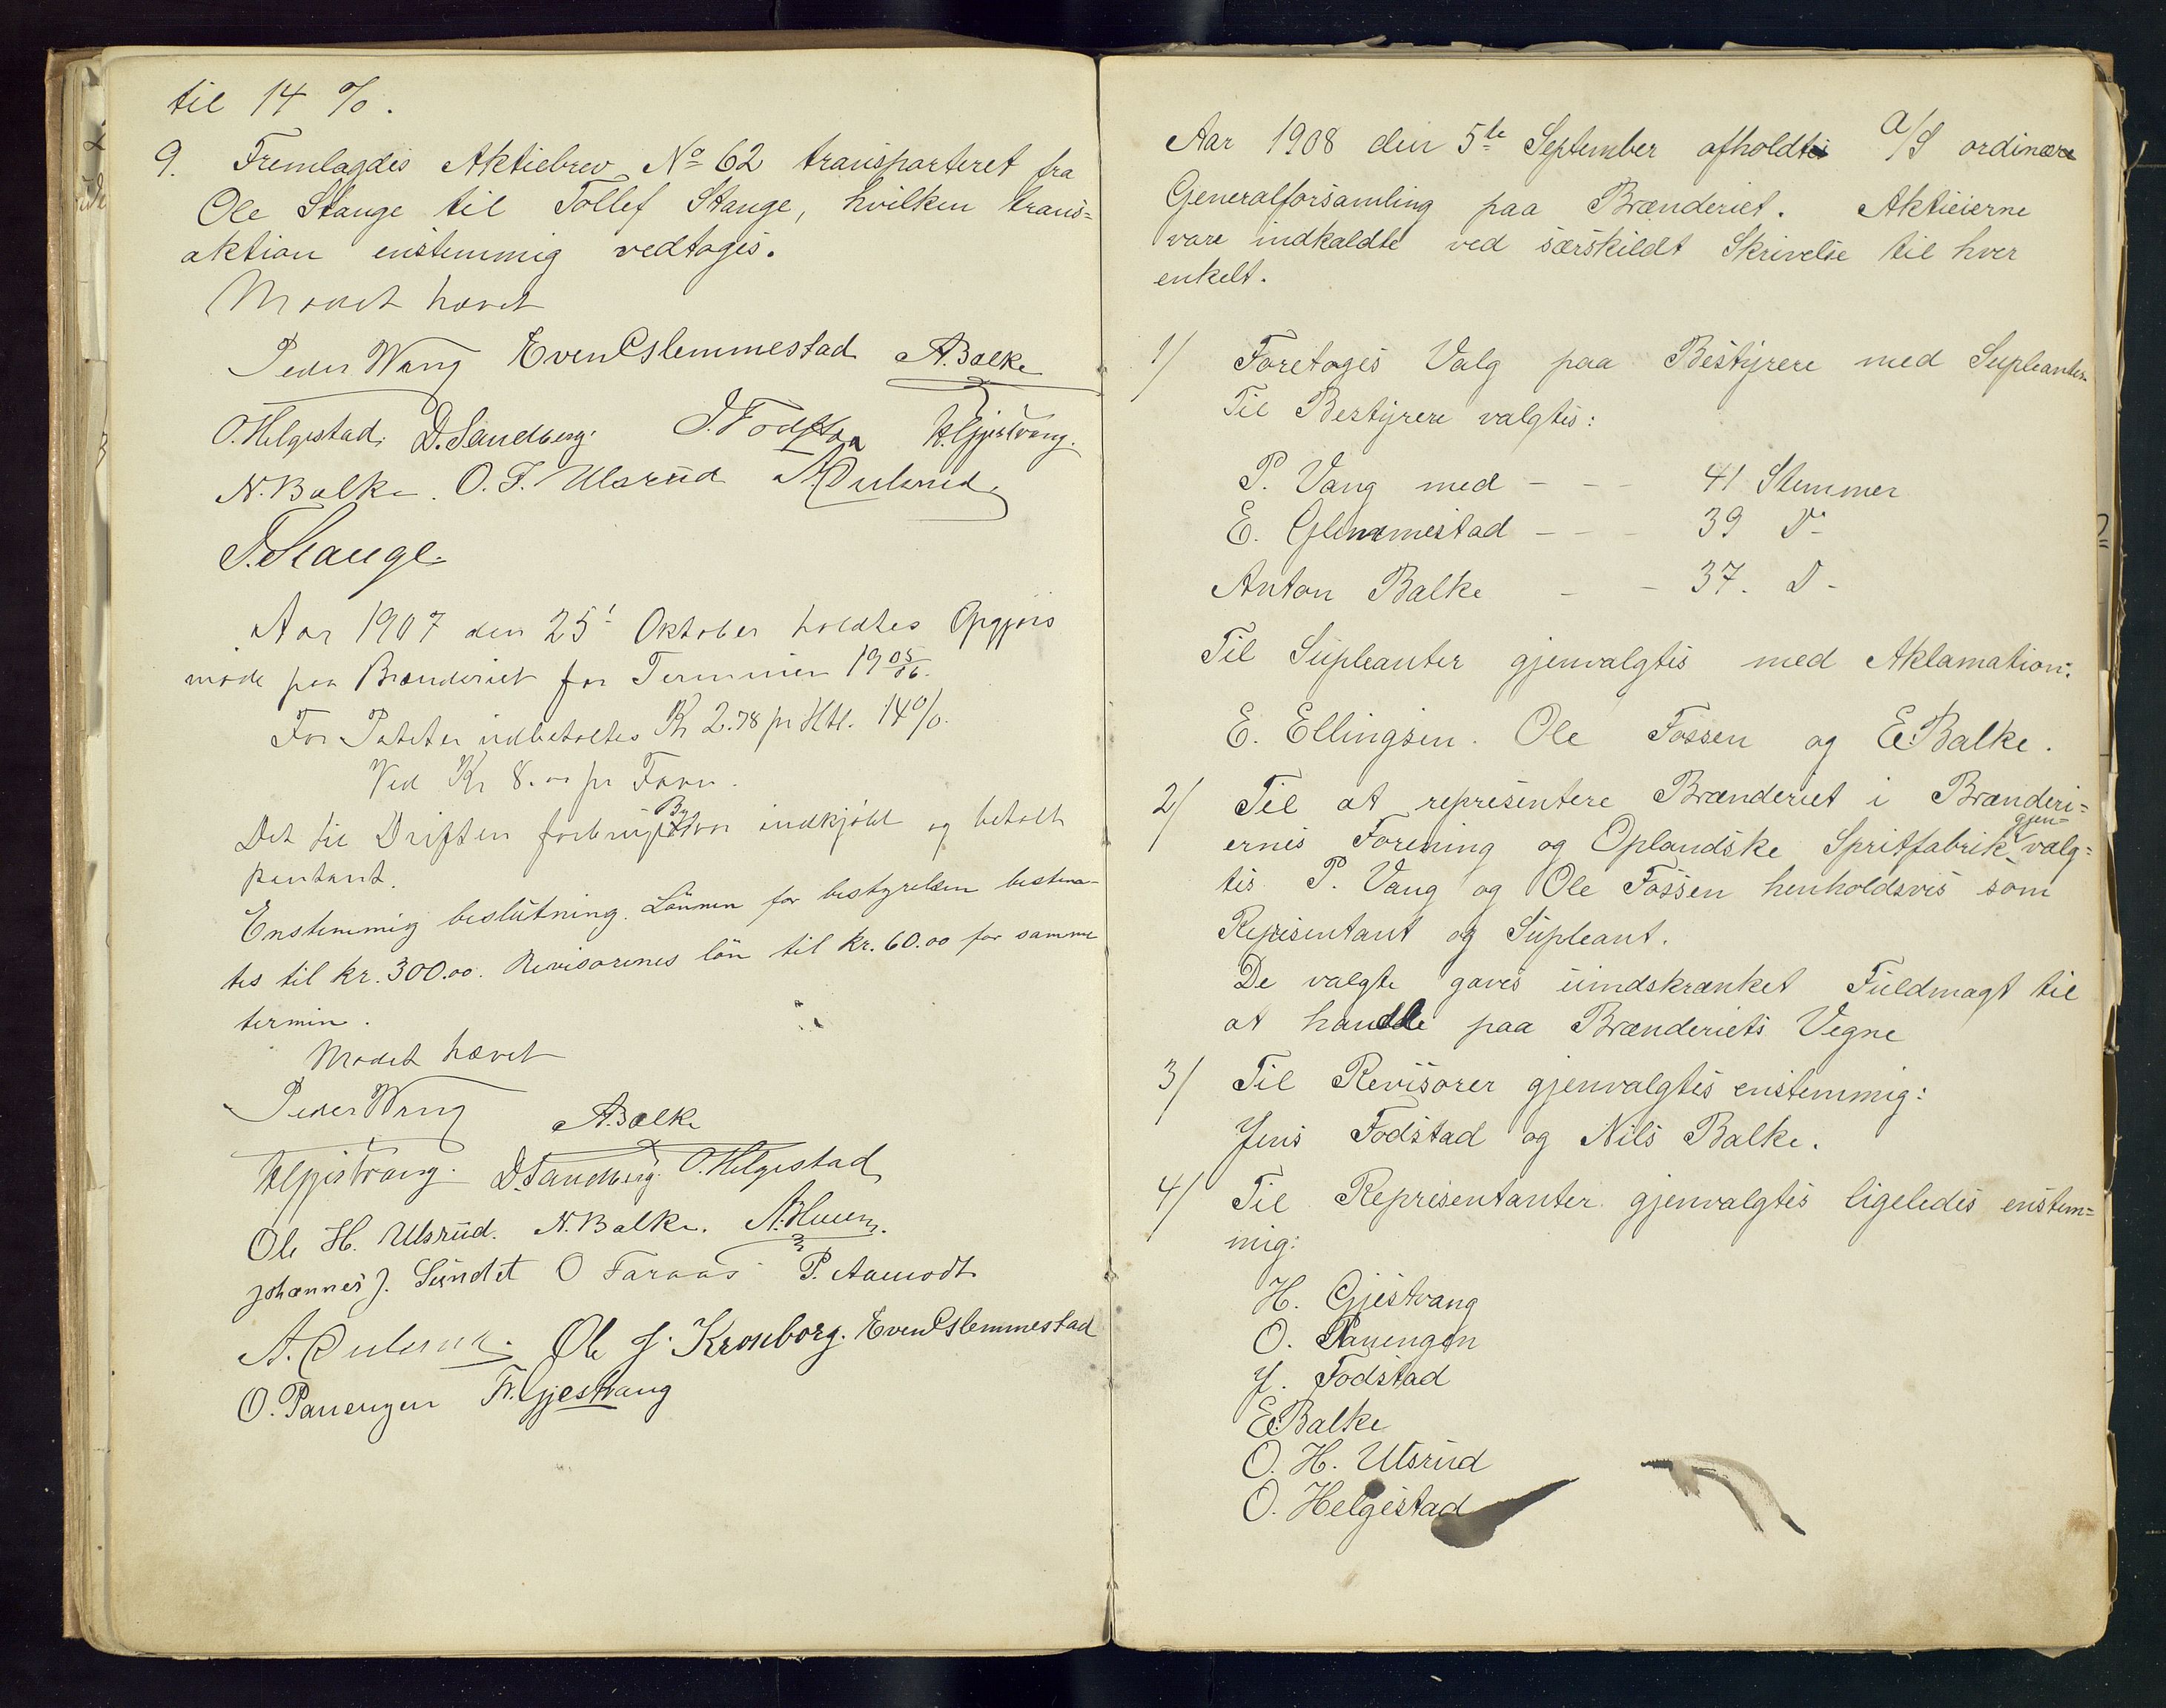 til 14 %.
9. Fremlagdes Aktiebrev No 62 transporteret fra
Ole Stange til Tollef Stange, hvilken trans=
aktion enstemmig vedtoges.
Mødet hævet
Peder Wang Even Glemmestad A. Balke
O. Helgestad. D. Sandberg. J. Fodstad H. Gjestvang.
N. Balke. O. H. Ulsrud
T. Stange
Aar 1907 den 25' Oktober holdtes Opgjørs
møde paa Brænderiet for Terminen 1905/06.
For Poteter udbetaltes Kr 2.78 pr Htl. 14%.
Ved Kr 8.00 pr Favn.
Det til Driften forbrugte Byg var indkjøbt og betalt
kontant.
Enstemmig beslutning. Lønnen for bestyrelsen bestem-
tes til kr. 300.00. Revisorenes løn til kr. 60.00 for samme
termin.
Mødet hævet
Peder Wang A. Balke
H. Gjestvang. D. Sandberg. O. Helgestad
Ole H. Ulsrud. N. Balke. A. Huuse.
Johannes J. Sundet O Faraas P. Aamodt
Ole J. Kronborg. Even Glemmestad
O. Panengen Fr. Gjestvang
Aar 1908 den 5te September afholdtes A/S ordinære
Generalforsamling paa Brænderiet. Aktieierne
vare indkaldte ved særskildt Skrivelse til hver
enkelt.
1/ Foretoges Valg paa Bestyrere med Supleanter.
Til Bestyrere valgtes:
P. Vang med - - - 41 Stemmer
E. Glemmestad - - - 39 Do
Anton Balke - - 37. D -
Til Supleanter gjenvalgtes med Aklamation:
E. Ellingsen. Ole Fossen og E. Balke.
2/ Til at representere Brænderiet i Brænderi=
ernes Forening og Oplandske Spritfabrik gjen=valg=
tes P. Vang og Ole Fossen henholdsvis som
Representant og Supleant.
De valgte gaves uindskrænket Fuldmagt til
at handle paa Brænderiets Vegne
3/ Til Revisorer gjenvalgtes enstemmig:
Jens Fodstad og Nils Balke.
4/ Til Representanter gjenvalgtes ligeledes enstem=
mig:
H. Gjestvang
O. Panengen
J. Fodstad
E. Balke
O. H. Ulsrud
O. Helgestad